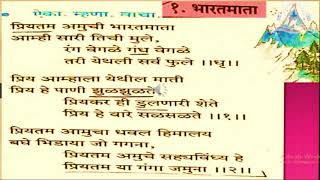 ऐका. म्हणा. वाचा.
१. भारतमाता
प्रियतम अमुची भारतमाता
आम्ही सारी तिची मुले,
रंग वेगळे गंध वेगळे
तरी येथली सर्व फुले ॥धृ॥
प्रिय आम्हाला येथील माती
प्रिय हे पाणी झुळझुळते
प्रियकर ही डुलणारी शेते
प्रिय हे वारे सळसळते ॥१॥
प्रियतम आमुचा धवल हिमालय
बघे भिडाया जो गगना,
प्रियतम अमुचे सह्यविंध्य हे
प्रियतम या गंगा जमुना ॥२॥